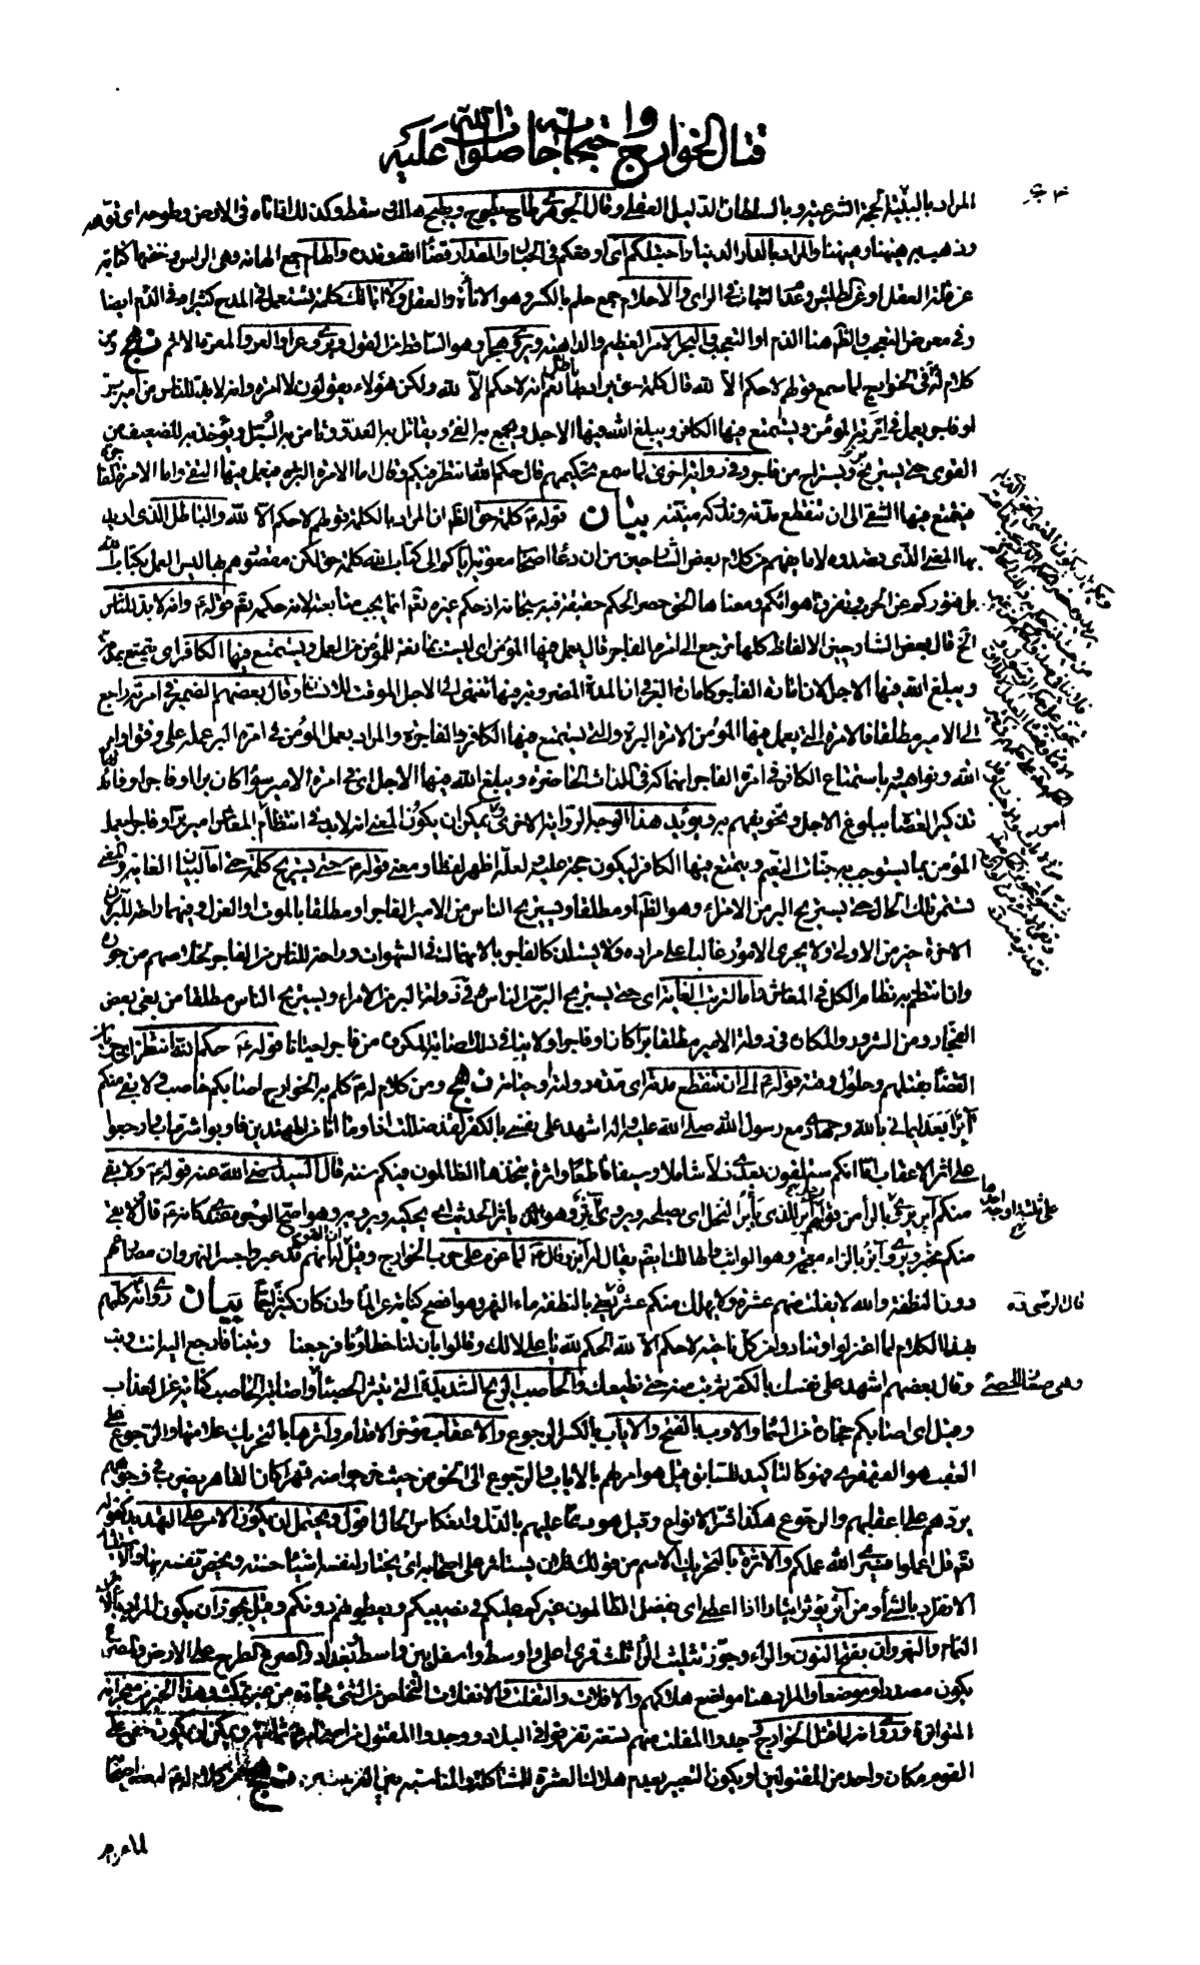 قتال الخوارج واحتجاجاته صلوات الله عليه
المراد بالبينة الحجة الشرعية وبالسلطان الدليل العقلي وقال الجوهري طاح يطوح ويطيح هلك وسقط وكذلك اذا تاه في الارض وطوحه اي توهه
وذهب به هيهنا وهيهنا والمراد بالدار الدنيا واحتبلكم اي اوقعكم في الحبالة والمقدار قضاء الله وقدره والهام جمع الهامة وهي الراس وخفتها كناية
عن قلة العقل او عن الطيش وعدم الثبات في الراي والاحلام جمع حلم بالكسر وهو الاناة والعقل ولا ابا لك كلمة تستعمل في المدح كثيرا وفي الذم ايضا
وفي معرض التعجب والظ هنا الذم او التعجب والبجر الامر العظيم والداهية ويروى هجرا وهو الساقط من القول ويروى عرا والعر والمعرة الاثم نهج ومن
كلام له في الخوارج لما سمع قولهم لا حكم الا لله قال كلمة حق يراد بها باطل نعم انه لا حكم الا لله ولكن هؤلاء يقولون لا امرة وانه لا بد للناس من امير بر
او فاجر يعمل في امرته المؤمن ويستمتع فيها الكافر ويبلغ الله فيها الاجل ويجمع به الفئ ويقاتل به العدو وتامن به السبل ويؤخذ به للضعيف من
القوى حتى يستريح بر ويستراح من فاجر وفي رواية اخرى لما سمع تحكيمهم قال حكم الله انتظر فيكم وقال اما الامرة البرة فيعمل فيها التقي واما الامرة الفاجرة
فيتمتع فيها الشقي الى ان تنقطع مدته وتدركه منيته بيان قوله ع كلمة حق الظ ان المراد بالكلمة قولهم لا حكم الا لله والباطل الذي اريد
بها المعنى الذي قصدوه لا ما يفهم من كلام بعض الشارحين من ان دعاء اصحاب معوية اياكم الى كتاب الله كلمة حق لكن مقصودهم بها ليس العمل بكتاب الله
بل فتوركم عن الحرب وتفرق اهوائكم ومعناها الحق حصر الحكم حقيقة فيه سبحانه اذ حكم غيره تع انما يجب متابعته لانه حكمه تع قوله ع وانه لا بد للناس
الخ قال بعض الشارحين الالفاظ كلها ترجع الى امرة الفاجر قال يعمل فيها المؤمن اي ليست بمانعة للمؤمن من العمل ويستمتع فيها الكافر اي يتمتع بمدته
ويبلغ الله فيها الاجل لان امارة الفاجر كامارة البر في ان المدة المضروبة فيها تنتهي الى الاجل الموقت للانسان وقال بعضهم الضمير في امرته راجع
الى الامير مطلقا فالامرة التي يعمل فيها المؤمن الامرة البرة والتي يستمتع فيها الكافر الفاجرة والمراد يعمل المؤمن في امرة البر عمله على وفق اوامر
الله ونواهيه وباستمتاع الكافر في امرة الفاجر انهماكه في اللذات الحاضرة ويبلغ الله فيها الاجل اي في امرة الامير سواء كان برا او فاجرا وفائدتها
تذكير العصاة ببلوغ الاجل وتخويفهم به ويؤيد هذا الوجه الرواية الاخرى ويمكن ان يكون المعنى انه لا بد في انتظام المعاش من امير بر او فاجر ليعمل
المؤمن بما يستوجب به جنات النعيم ويتمتع فيها الكافر ليكون حجة عليه ولعله اظهر لفظا ومعنى قوله ع حتى يستريح كلمة حتى اما لبيان الغاية والمعنى
تستمر تلك الحال حتى يستريح البر من الامراء وهو الظ او مطلقا ويستريح الناس من الامير الفاجر او مطلقا بالموت او العزل وفيهما راحة للبر لان
الاخرة خير من الاولى ولا يجري الامور غالبا على مراده ولا يستلذ كالفاجر بالانهماك في الشهوات وراحة للناس من الفاجر لخلاصهم من جوره
وان انتظم به نظام الكل في المعاش واما لترتب الغاية اي حتى يستريح البر من الناس في دولة البر من الامراء ويستريح الناس مطلقا من بغي بعض
الفجار ومن الشرور والمكاره في دولة الامير مطلقا برا كان او فاجرا ولا ينافي ذلك اصابة المكروه من فاجر احيانا قوله ع حكم الله انتظر اي جريان
القضاء بقتلهم وحلول وقته قوله ع الى ان تنقطع مدته اي مدة دولته او حياته نهج ومن كلام له ع كلم به الخوارج اصابكم حاصب ولا بقي منكم
آبر ابعد ايماني بالله وجهادي مع رسول الله صلى الله عليه واله اشهد على نفسي بالكفر لقد ضللت اذا وما انا من المهتدين فاوبوا شر ماب وارجعوا
على اثر الاعقاب اما انكم ستلقون بعدي ذلا شاملا وسيفا قاطعا واثرة يتخذها الظالمون فيكم سنة قال السيد رضي الله عنه قوله ع ولا بقي
منكم آبر يروى بالراء من قولهم رجل آبر للذي يأبر النخل اي يصلحه ويروى آثر وهو الذي ياثر الحديث اي يحكيه ويرويه وهو اصح الوجوه عندي كانه ع قال لا بقي
منكم مخبر ويروى آبز بالزاء معجمة وهو الواثب والهالك ايضا يقال له آبز وقال ع لما عزم على حرب الخوارج وقيل له انهم قد عبروا جسر النهروان مصارعهم
دون النطفة والله لا يفلت منهم عشرة ولا يهلك منكم عشرة يعني بالنطفة ماء النهر وهو افصح كناية عن الماء وان كان كثيرا جما بيان روى انه كلمهم
بهذا الكلام لما اعتزلوا وتنادوا من كل ناحية لا حكم الا لله الحكم لله يا علي لا لك وقالوا بان لنا خطاؤنا فرجعنا وتبنا فارجع اليه انت وتب
وقال بعضهم اشهد على نفسك بالكفر ثم تب منه حتى نطيعك والحاصب الريح الشديدة التي تثير الحصباء واصابة الحاصب كناية عن العذاب
وقيل اي اصابكم حجارة من السماء والاوب بالفتح والاياب بالكسر الرجوع والاعقاب مؤخر الاقدام واثرها بالتحريك علامتها والرجوع على
العقب هو القهقرى فهو كالتاكيد للسابق قيل هو امر لهم بالاياب والرجوع الى الحق من حيث خرجوا منه قهرا كان القاهر يضرب في وجوههم
يردهم على اعقابهم والرجوع هكذا شر الانواع وقيل هو دعاء عليهم بالذل وانعكاس الحال اقول ويحتمل ان يكون الامر على التهديد كقوله
تع قل اعملوا فسيرى الله عملكم والاثرة بالتحريك الاسم من قولك فلان يستاثر على اصحابه اي يختار لنفسه اشياء حسنة ويخص نفسه بها والاستيثار
الانفراد بالشئ او من آثر يوثر ايثارا اذا اعطى اي يفضل الظالمون غيركم عليكم في نصيبكم ويعطونهم دونكم وقيل يجوز ان يكون المراد
النمام والنهروان بفتح النون والراء وجوز تثليث الراء ثلث قرى اعلى واوسط واسفل بين واسط وبغداد والصرع الطرح على الارض والمصرع
يكون مصدرا وموضعا والمراد هنا مواضع هلاكهم والافلات والتفلت والانفلات التخلص من الشئ فجاة من غير تمكث وهذا الخبر من معجزاته
المتواترة وروى انه لما قتل الخوارج وجدوا المفلت منهم تسعة تفرقوا في البلاد ووجدوا المقتول من اصحابه ع ثمانية ويمكن ان يكون خفي على
القوم مكان واحد من المقتولين او يكون التعبير بعدم هلاك العشرة للمشاكلة والمناسبة بين القرينتين نهج ومن كلام له ع قاله لبعض اصحابه
لما عزم
على ثلثة اوجه احدها
قال الرضي ره
وهي صغار الحصى